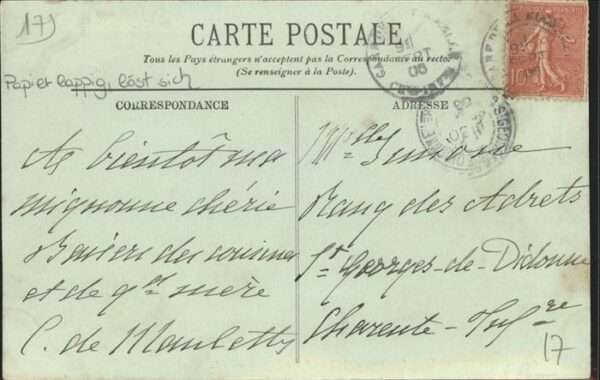 171
CARTE POSTALE
Tous les Pays étrangers n'acceptent pas la Correspondance au recto.
(Se renseigner à la Poste).
Papier lappig, löst sich
CORRESPONDANCE
A bientôt ma
mignonne chérie
Baisers des cousines
et de gd mère
C. de
ADRESSE
Mlle Simone
Rang des Adrets
St Georges-de-Didonne
Charente-Infre
10
17